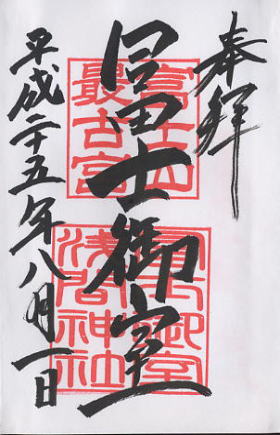 奉拝
冨士山
最古宮
冨士御室
冨士御室
浅間神社
平成二十五年八月一日